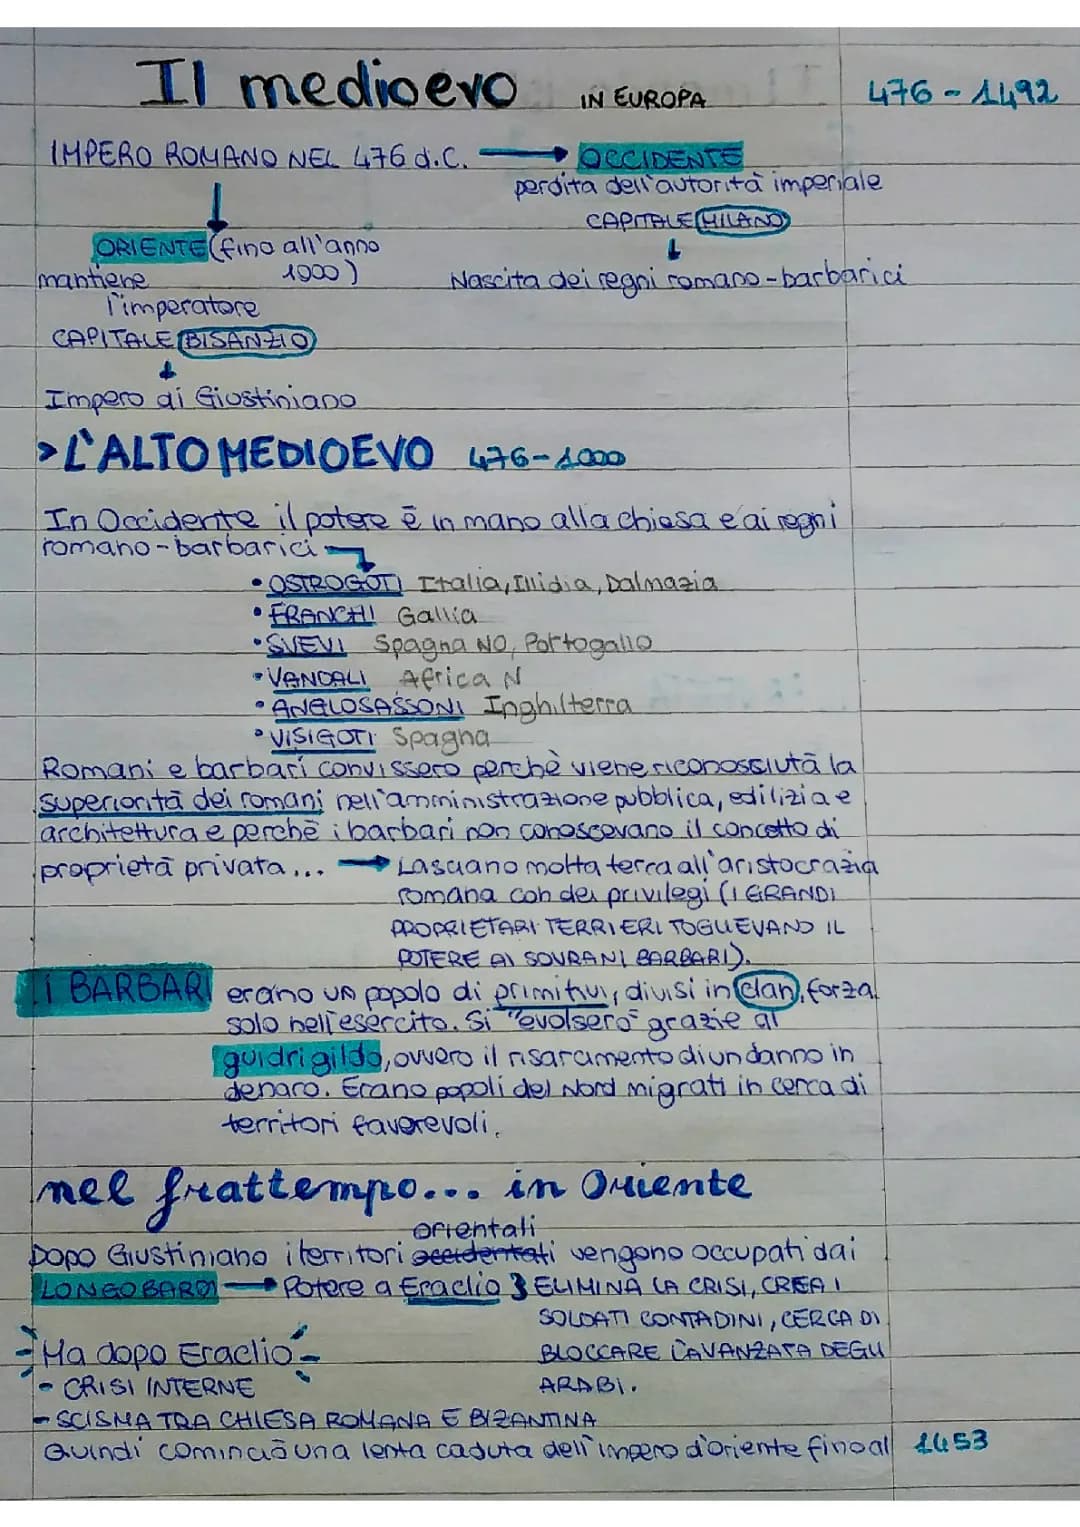 Il medioevo IN EUROPA 476-1492
IMPERO ROMANO NEL 476 d.C. → OCCIDENTE
perdita dell'autorità imperiale
CAPITALE MILANO
ORIENTE (fino all'anno 1000)
mantiene l'imperatore
Nascita dei regni romano-barbarici
CAPITALE BISANZIO
Impero di Giustiniano
>L'ALTO MEDIOEVO 476-1000
In Occidente il potere è in mano alla chiesa e ai regni
romano-barbarici
• OSTROGOTI Italia, Illidia, Dalmazia
• FRANCHI Gallia
• SVEVI Spagna NO, Portogallo
• VANDALI Africa N
• ANGLOSASSONI Inghilterra
• VISIGOTI Spagna
Romani e barbari convissero perchè viene riconossiuta la
superiorità dei romani nell'amministrazione pubblica, edilizia e
architettura e perchè i barbari non conoscevano il concetto di
proprietà privata... → Lasciano molta terra all'aristocrazia
romana con dei privilegi (I GRANDI
PROPRIETARI TERRIERI TOGLIEVANO IL
POTERE AI SOVRANI BARBARI).
I BARBARI erano un popolo di primitivi, divisi in clan, forza
solo nell'esercito. Si "evolsero" grazie al
guidrigildo, ovvero il risarcimento di un danno in
denaro. Erano popoli del Nord migrati in cerca di
territori favorevoli.
nel frattempo... in Oriente
orientali
DOPO Giustiniano i territori occidentali vengono occupati dai
LONGOBARDI → Potere a Eraclio } ELIMINA LA CRISI, CREA I
SOLDATI CONTADINI, CERCA DI
BLOCCARE L'AVANZATA DEGLI
ARABI.
Ma dopo Eraclio
- CRISI INTERNE
- SCISMA TRA CHIESA ROMANA E BIZANTINA
Quindi cominciò una lenta caduta dell'impero d'oriente fino al 1453